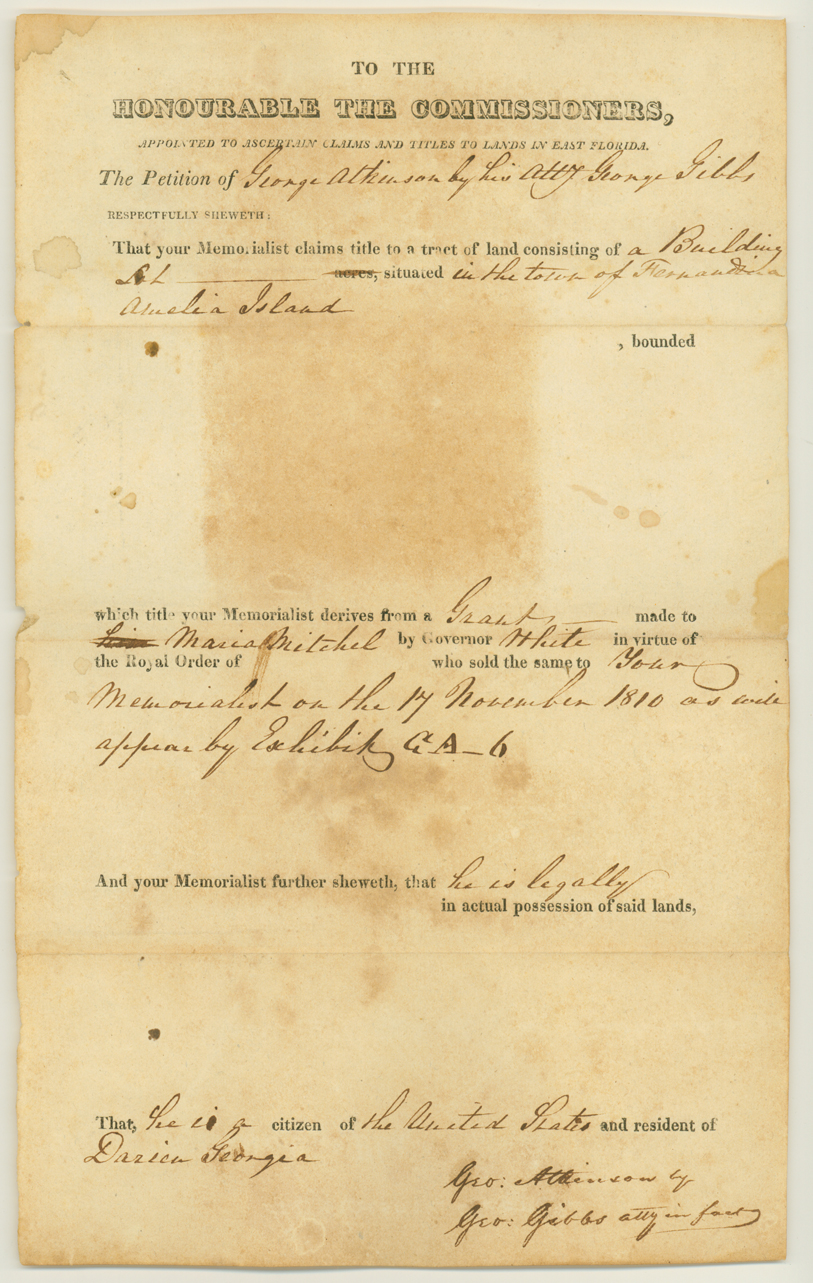 TO THE
HONOURABLE THE COMMISSIONERS,
APPOINTED TO ASCERTAIN CLAIMS AND TITLES TO LANDS IN EAST FLORIDA.
The Petition of George Atkinson by his Atty George Gibbs
RESPECTFULLY SHEWETH:
That your Memorialist claims title to a tract of land consisting of a Building
Lot acres, situated in the town of Fernandina
Amelia Island
, bounded
which title your Memorialist derives from a Grant made to
him Maria Mitchel by Governor White in virtue of
the Royal Order of who sold the same to Your
Memorialist on the 17 November 1810 as will
appear by Exhibit GA-6
And your Memorialist further sheweth, that he is legally
in actual possession of said lands,
That, he is a citizen of the United States and resident of
Darien Georgia
Geo: Atkinson by
Geo: Gibbs atty in fact